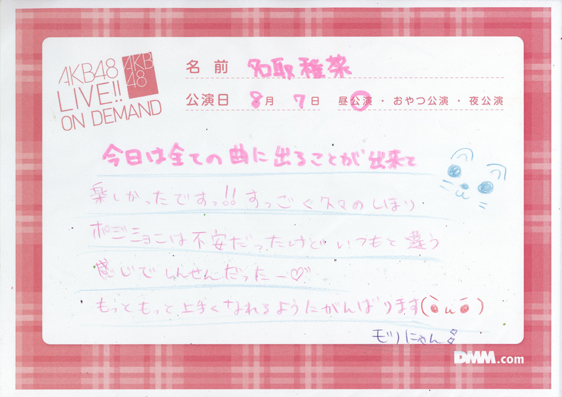 AKB48
LIVE!!
ON DEMAND
AKB
48
名前 名取稚菜
公演日 8月 7日 昼公演・おやつ公演・夜公演
今日は全ての曲に出ることが出来て
楽しかったですっ!! すっごく久々のしほり
ポジションは不安だったけど いつもと違う
感じでしんせんだったー♡
もっともっと上手くなれるようにがんばります
モリにゃん
DMM.com